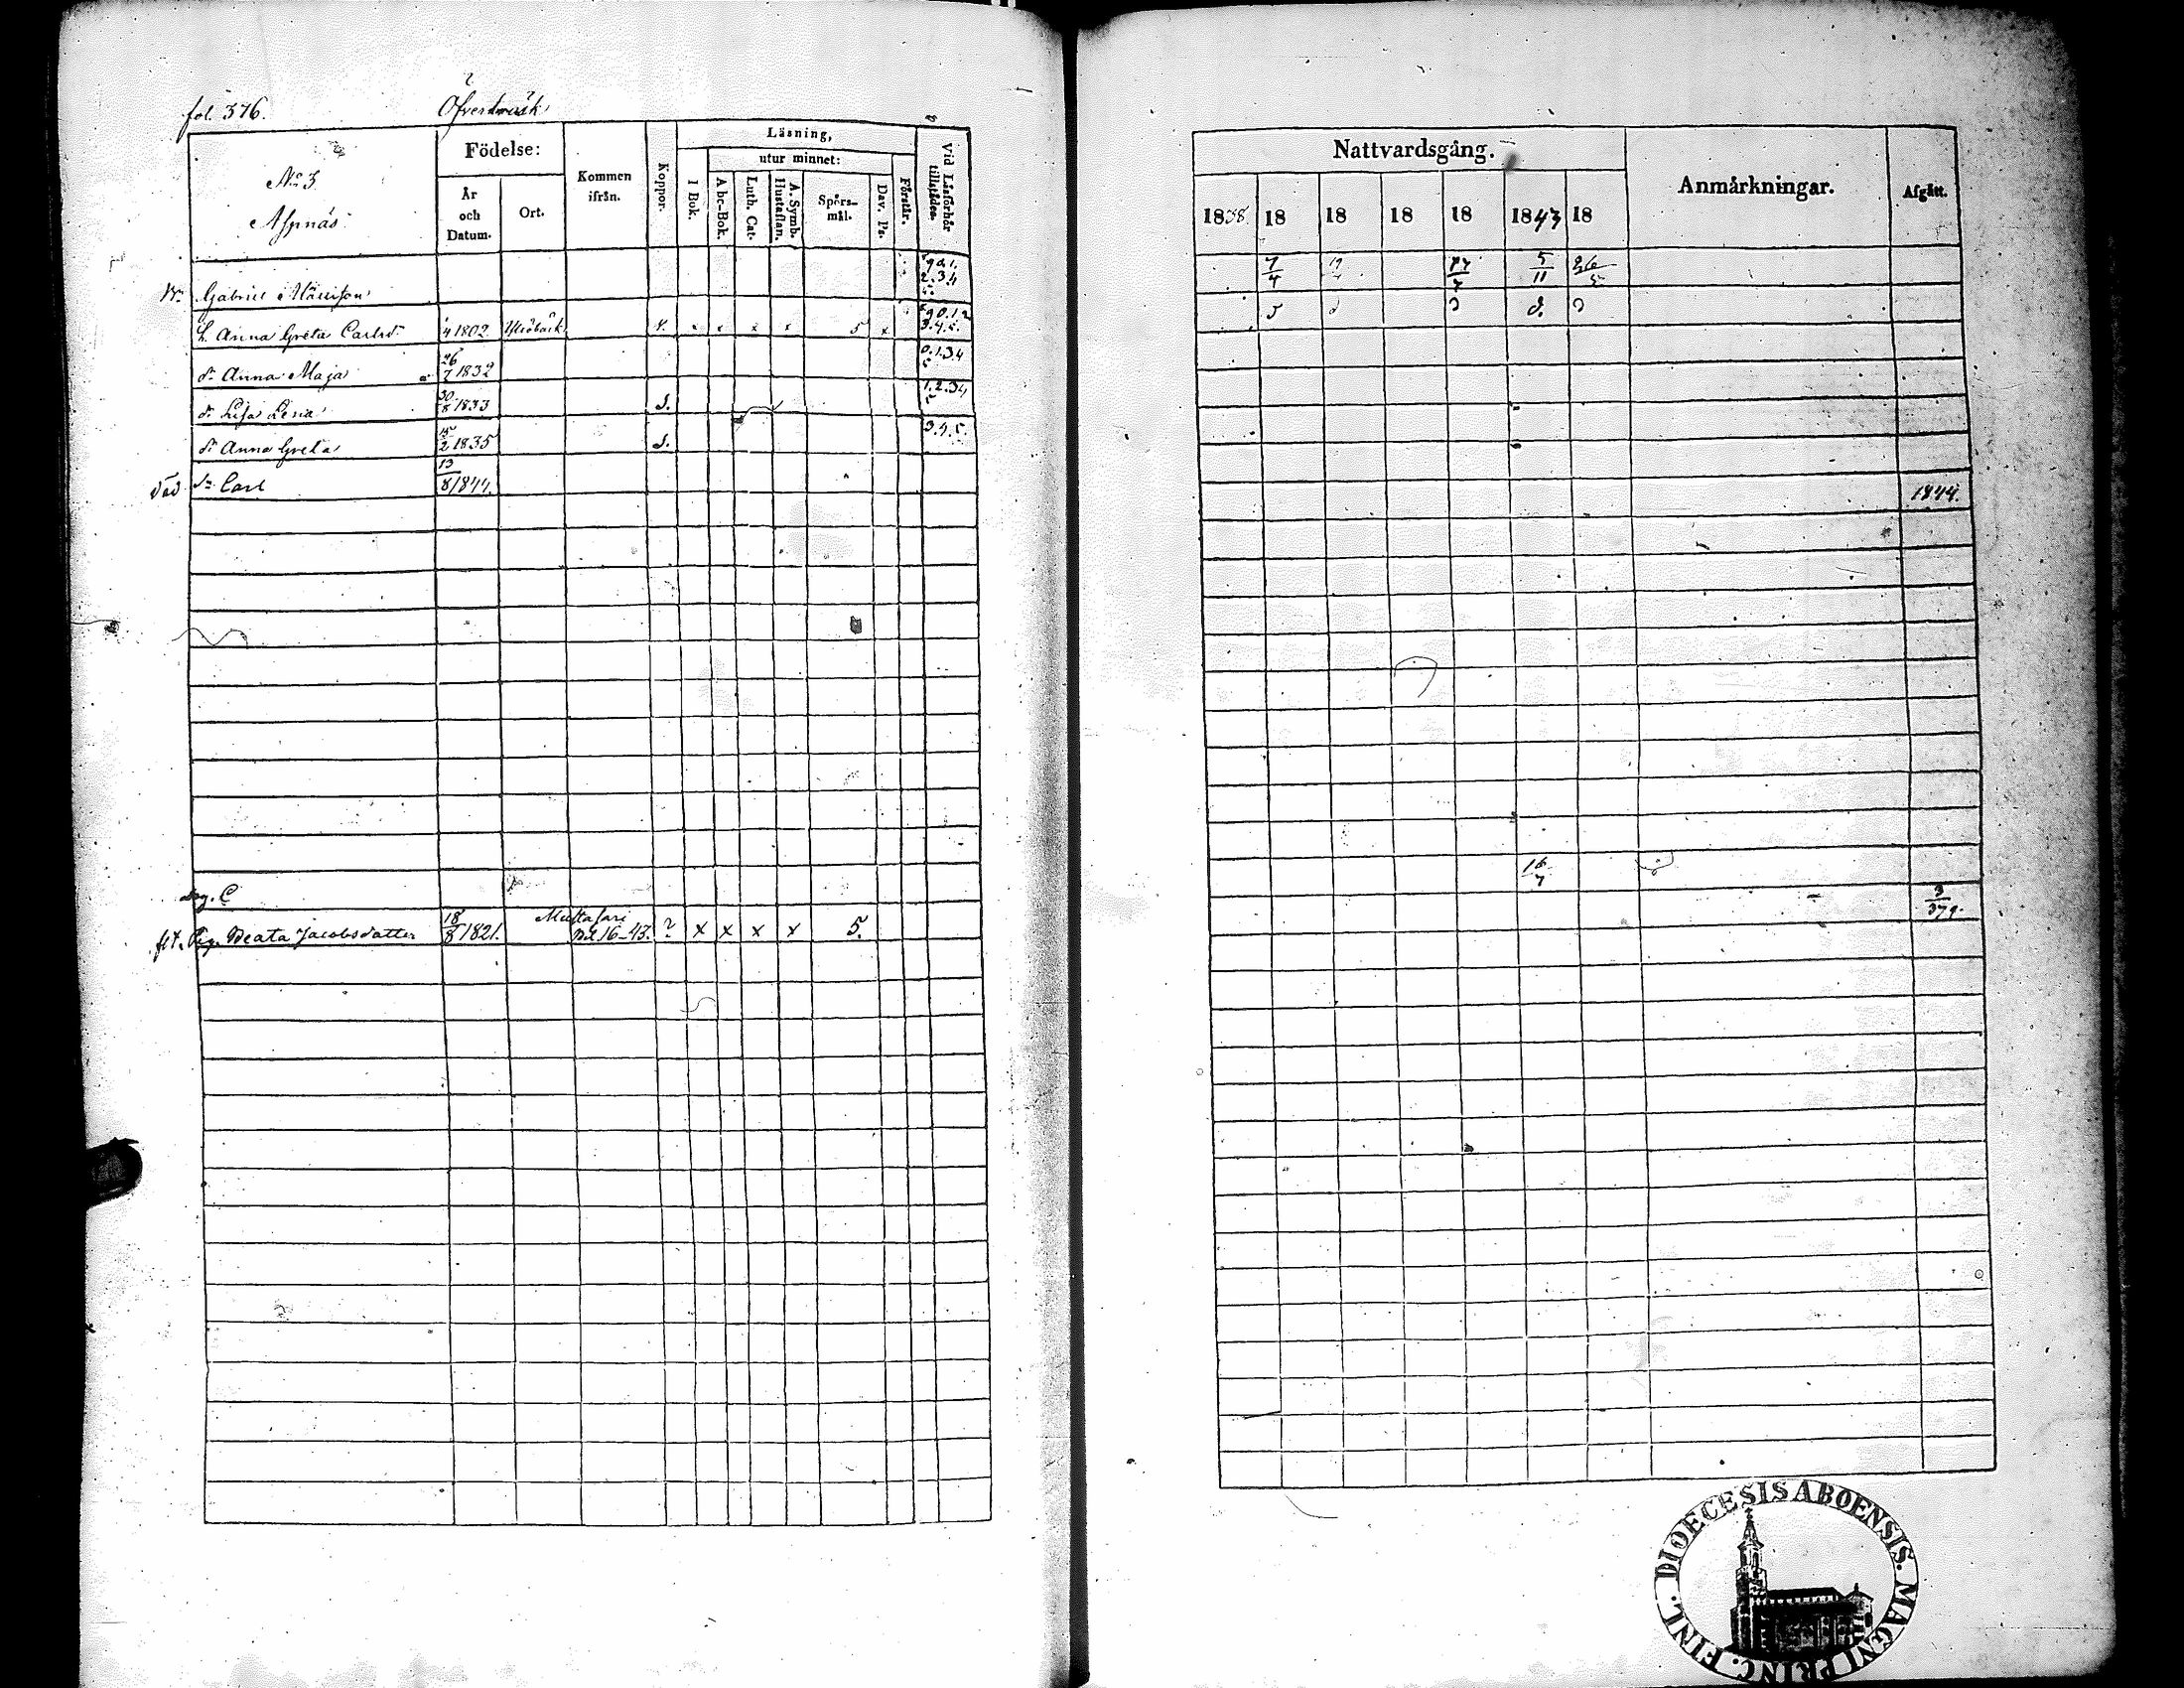 fol. 376.
Öfverträsk
No 3
Aspnäs
Födelse:
År och Datum.
Ort.
Kommen ifrån.
Koppor.
Läsning,
I Bok.
utur minnet:
Abc-Bok.
Luth. Cat.
A. Symb. Hustaflan.
Spörs-mål.
Dav. Ps.
Förstår.
Vid Läsförhör tillstädes.
Gabriel
9.0.1. 2.3.4 5.
H. Anna Greta Carlsdr 4 1802 x x x x 5 x 9.0.1.2 3.4.5.
dr Anna Maja 26/7 1832 0.1.3.4 5
dr Lisa Lena 30/8 1833 d. 1.2.3.4 5
dr Anna Greta 15/2 1835 d. 3.4.5.
död sn Carl 13/8 1844.
Pig. Beata Jacobsdatter 18/8 1821. Bet. 16-43. ? x x x x 5.
Nattvardsgång.
Anmärkningar.
Afgått.
1838. 18 18 18 18 1843 18
7/4 5/11 26/5
1844.
16/7
3/379.
DIOECESIS ABOENSIS. MAGNI PRINC. FINL.